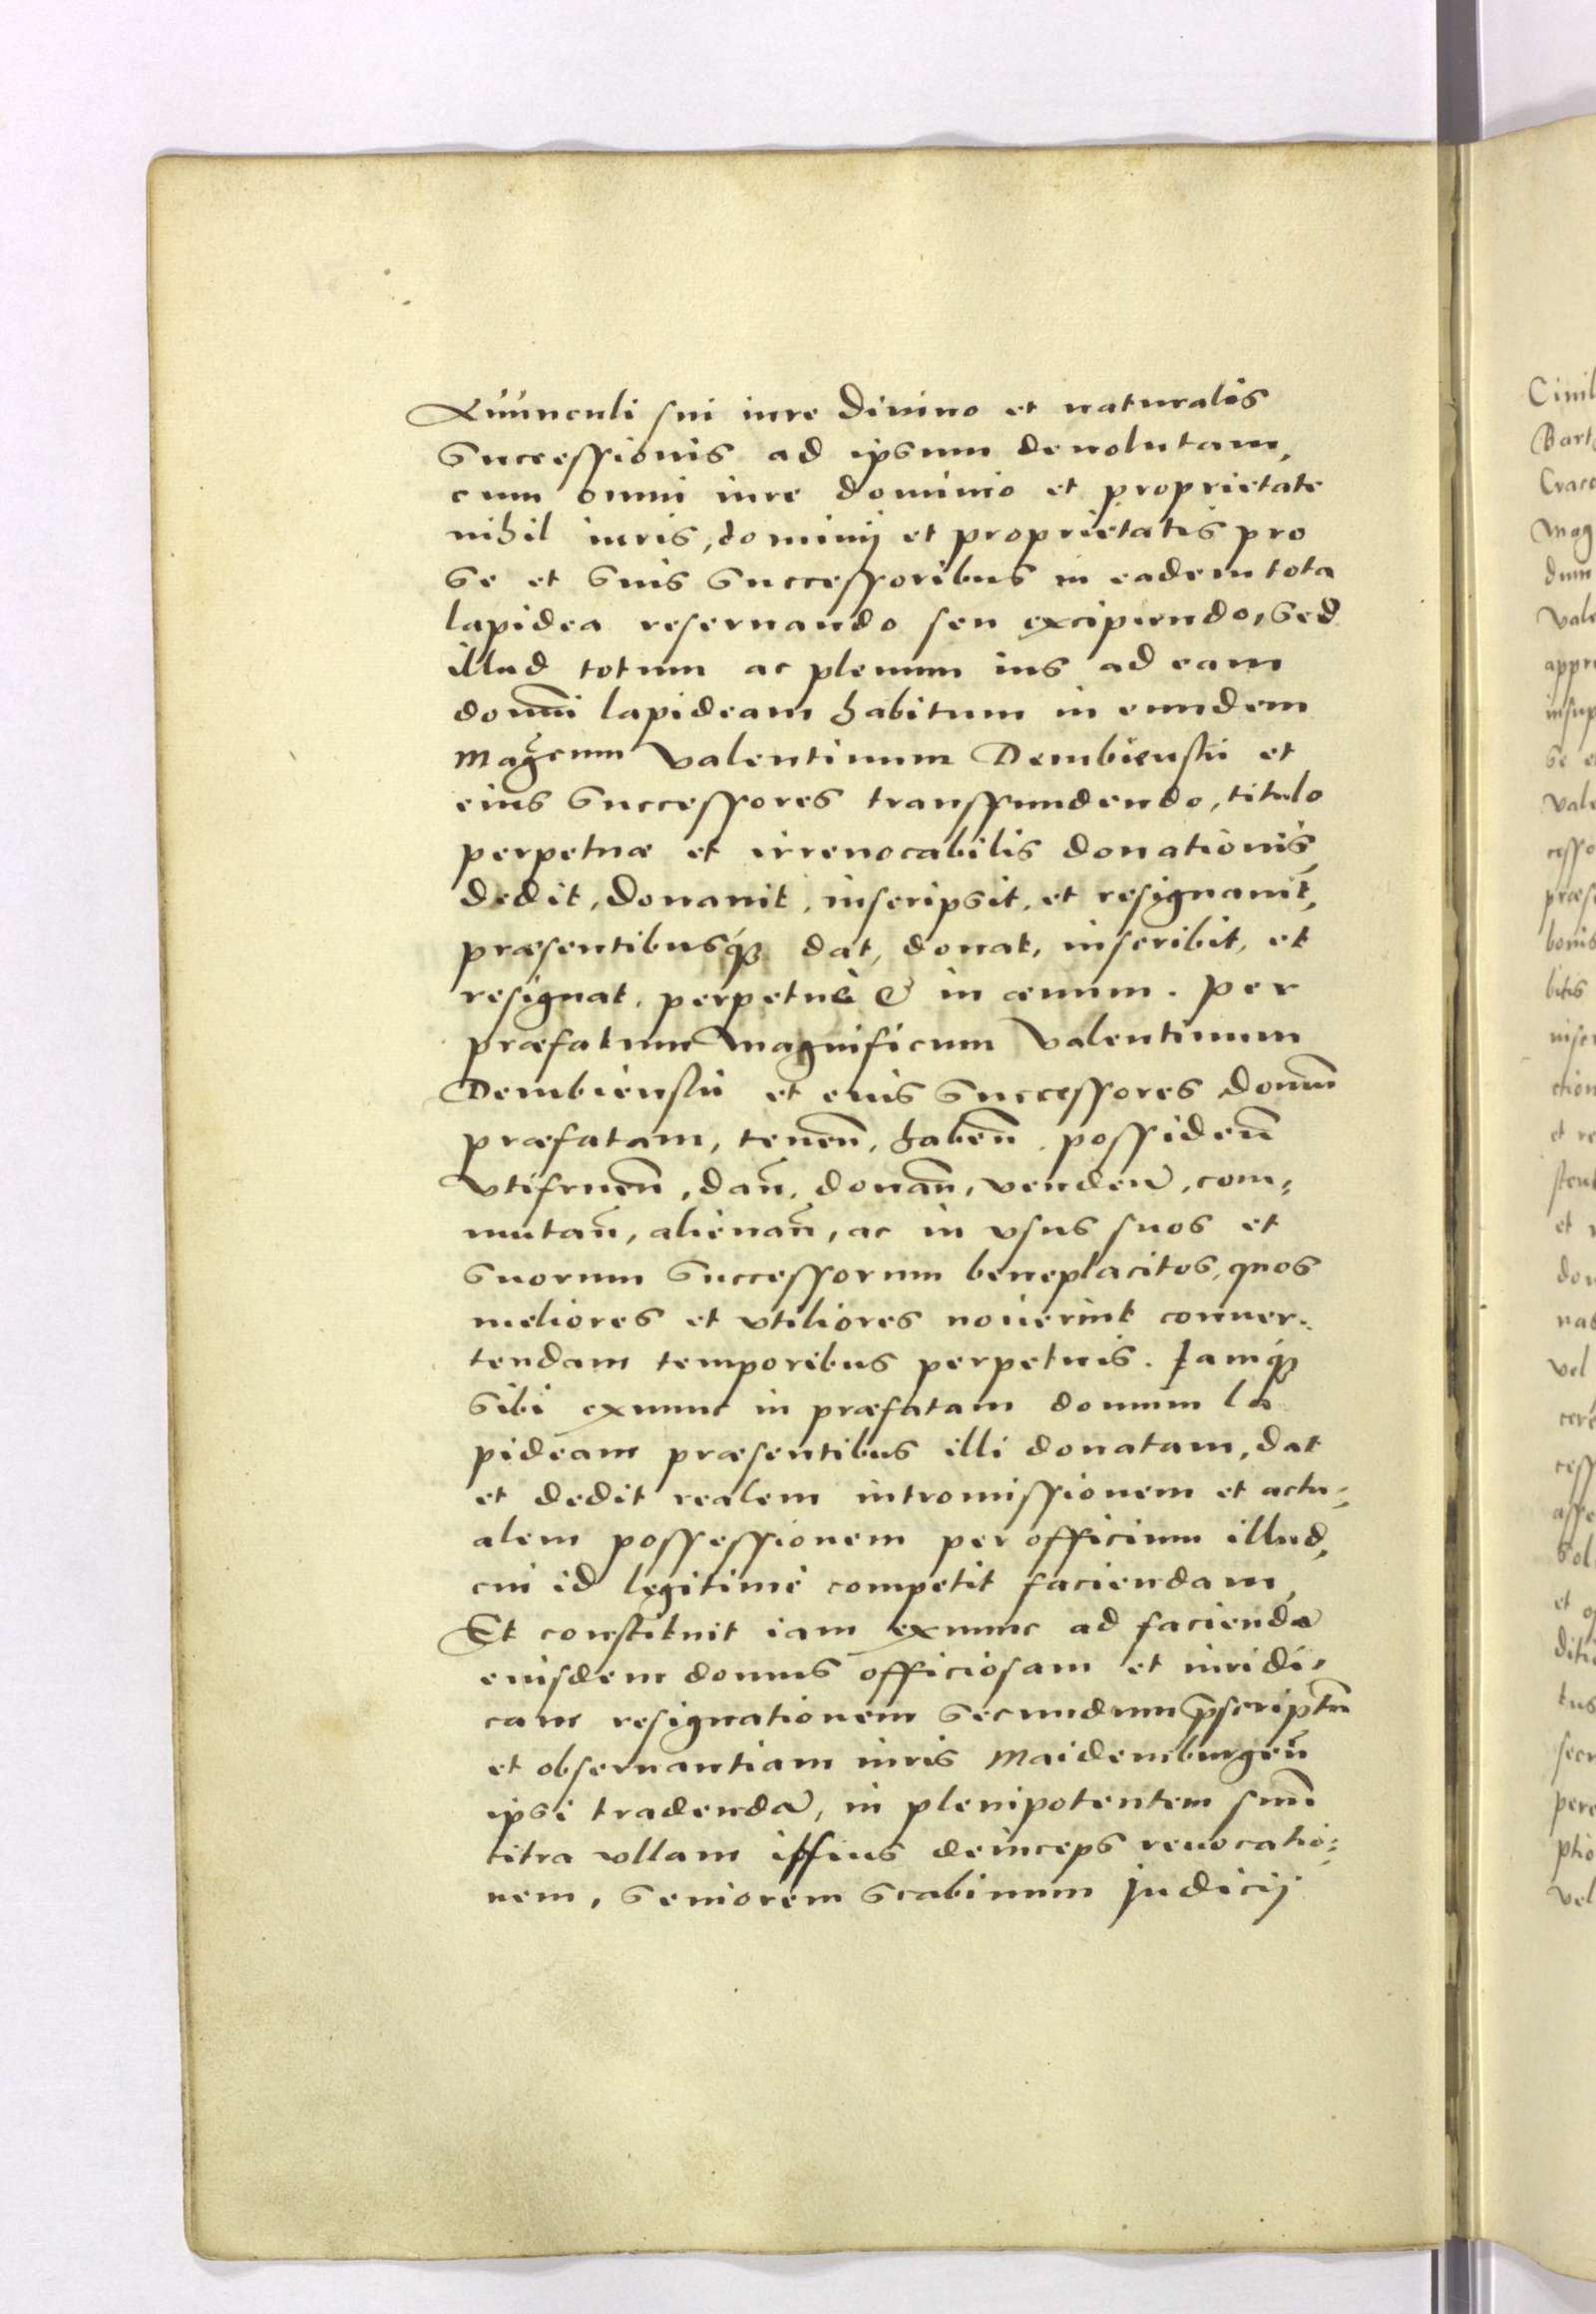 Auunculi sui iure Diuino et naturalis
Successionis ad ipsum deuolutam,
cum omni iure dominio et proprietate
nihil iuris, dominij et proprietatis pro
se et suis Successoribus in eadem tota
lapidea reseruando seu excipiendo, sed
illud totum ac plenum ius ad eam
domū lapideam habitum in eundem
Mag̃cum Valentinum Dembienskii et
eius Successores transfundendo, titulo
perpetuæ et irreuocabilis donationis,
dedit, donauit, inscripsit, et resignauit,
præsentibusq́ꝫ dat, donat, inscribit, et
resignat, perpetuè & in æuum. Per
præfatum Magnificum Valentinum
Dembienskii et eius Successores domū
præfatam, teneñ, habeñ, possideñ
vtifrueñ, dañ, donañ, vendeñ, com=
mutañ, alienañ, ac in vsus suos et
suorum Successorum beneplacitos, quos
meliores et vtiliores nouerint conuer=
tendam temporibus perpetuis. Iamq́ꝫ
sibi exnunc in præfatam domum la
pideam præsentibus illi donatam, dat
et dedit realem intromissionem et actu=
alem possessionem per officium illud,
cui id legitimè competit faciendam,
Et constituit iam exnunc ad faciendā
eiusdem domus officiosam et iuridi=
cam resignationem secundum p̄scriptū
et obseruantiam iuris Maidemburgeñ
ipsi tradendā, in plenipotentem suū
citra vllam ipsius deinceps reuocatio=
nem, Seniorem Scabinum Judicij
Ciuil
Bart
Craco
Mag
dum
Vale
appr
insup
se e
Vale
cesso
præs
bonis
bitis
inscr
ction
et re
et
do
nas
vel
cere
cess
asse
Sol
et o
diti
tus
secu
pere
ptio
vel